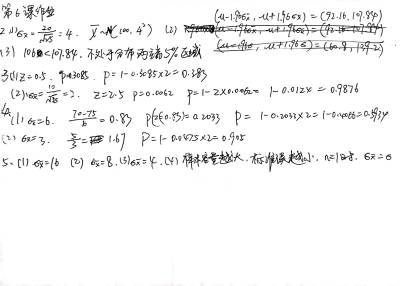 第6课作业
2.(1) σx̄ = 20/√25 = 4. x̄~N(100, 4²) (2) (μ-1.96σx̄, μ+1.96σx̄) = (92.16, 107.84)
(3) 106<107.84, 不处于分布两端5%区域
3.(1) Z=0.5, p=0.3085. P=1-0.3085×2=0.383
(2) σx̄=10/√25=2. Z=2.5 p=0.0062 P=1-2×0.0062= 1-0.0124 = 0.9876
4. (1) σx̄=6. =0.83 P(z≥0.83)=0.2033 P= 1-0.2033×2=1-0.4066=0.5934
(2) σx̄=3. 5/3= 1.67 P=1-0.0475×2=0.905
5. (1) σx̄=16 (2) σx̄=8. (3) σx̄=4. (4) 样本容量越大, 标准误越小.